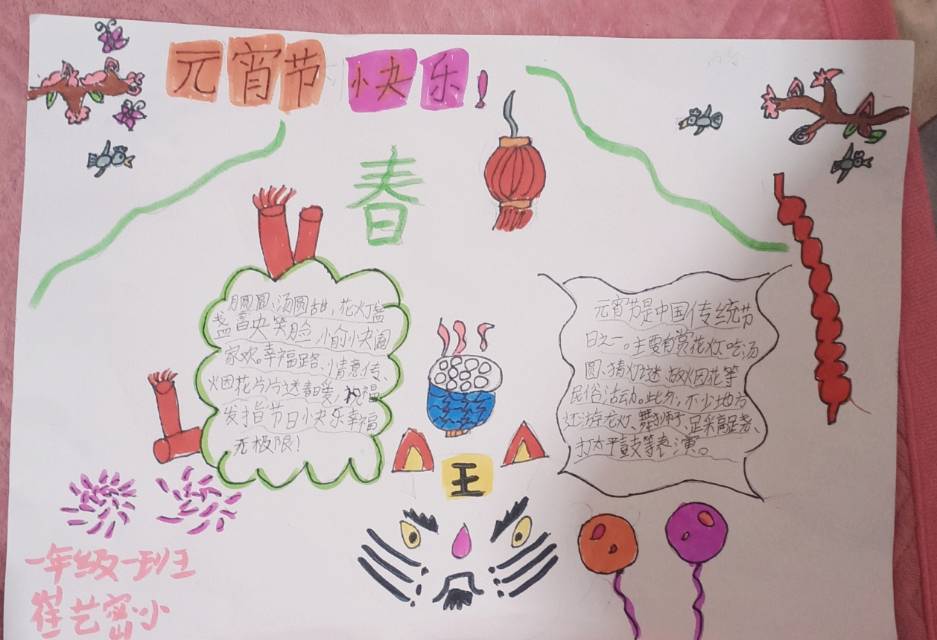 元宵节快乐!
春
月圆圆、汤圆甜,花灯盏
盏喜映笑脸,愉快阖
家欢。幸福路、情意传、
烟花片片送春暖,祝福
发指节日快乐幸福
无极限!
元宵节是中国传统节
日之一。主要有赏花灯、吃汤
圆、猜灯谜、放烟花等
民俗活动。此外,不少地方
还游龙灯、舞狮子、踩高跷、
打太平鼓等表演。
王
一年级一班王
艺